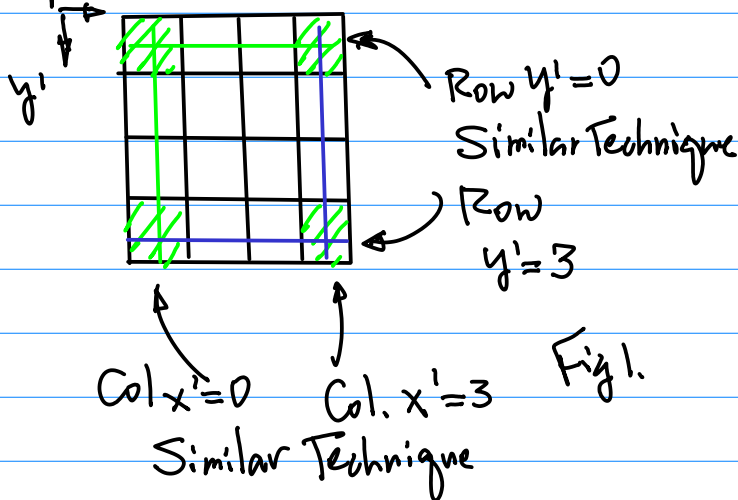 y'
Row y'=0
Similar Technique
Row
y'=3
Col x'=0
Col. x'=3
Similar Technique
Fig 1.